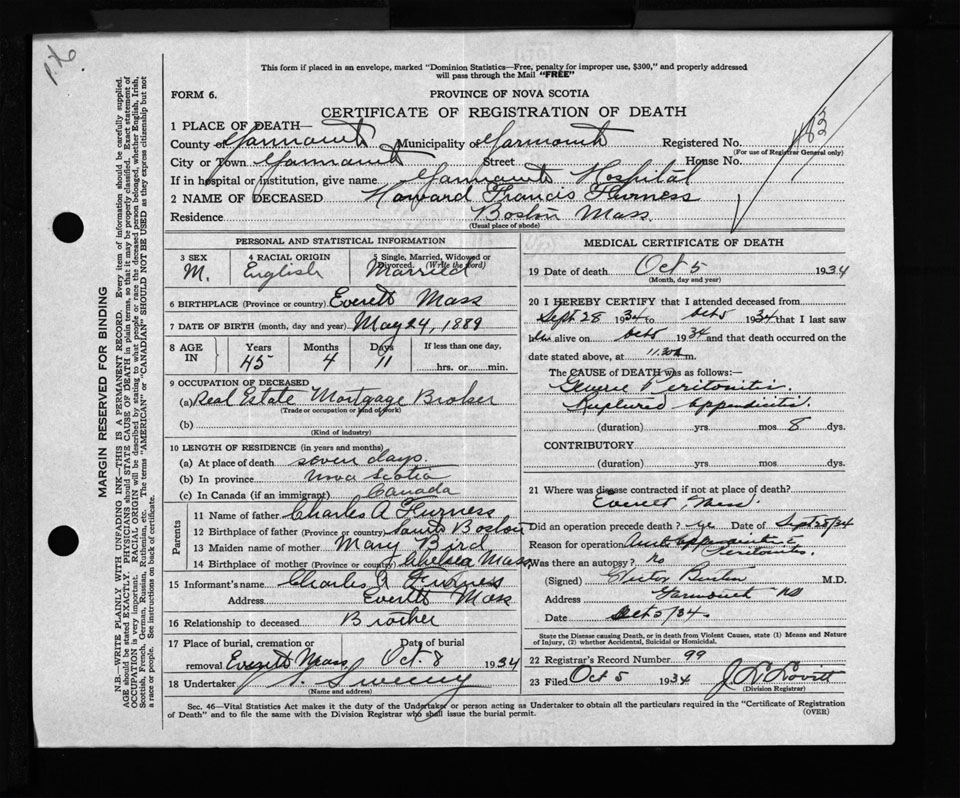 This form if placed in an envelope, marked "Dominion Statistics—Free, penalty for improper use, $300," and properly addressed
will pass through the Mail "FREE"
FORM 6.
PROVINCE OF NOVA SCOTIA
CERTIFICATE OF REGISTRATION OF DEATH
1 PLACE OF DEATH—
County of Yarmouth Municipality of Yarmouth Registered No.
(For use of Registrar General only)
City or Town Yarmouth Street House No.
If in hospital or institution, give name Yarmouth Hospital
2 NAME OF DECEASED Howard Francis Furness
Residence Boston Mass.
(Usual place of abode)
PERSONAL AND STATISTICAL INFORMATION
3 SEX 4 RACIAL ORIGIN 5 Single, Married, Widowed or Divorced. (Write the word)
M. English Married
6 BIRTHPLACE (Province or country) Everett Mass
7 DATE OF BIRTH (month, day and year) May 24, 1889
8 AGE IN Years Months Days If less than one day,
45 4 11 hrs. or min.
9 OCCUPATION OF DECEASED
(a) Real Estate Mortgage Broker
(Trade or occupation or kind of work)
(b)
(Kind of industry)
10 LENGTH OF RESIDENCE (in years and months)
(a) At place of death seven days.
(b) In province Nova Scotia
(c) In Canada (if an immigrant) Canada
Parents
11 Name of father Charles A Furness
12 Birthplace of father (Province or country) South Boston
13 Maiden name of mother Mary Bird
14 Birthplace of mother (Province or country) Chelsea Mass.
15 Informant's name Charles A Furness
Address Everett Mass
16 Relationship to deceased Brother
17 Place of burial, cremation or Date of burial
removal Everett Mass. Oct. 8 1934
18 Undertaker Sweeny
(Name and address)
MEDICAL CERTIFICATE OF DEATH
19 Date of death Oct 5 1934
(Month, day and year)
20 I HEREBY CERTIFY that I attended deceased from
Sept 28 1934 to Oct 5 1934 that I last saw
him alive on Oct 5 1934 and that death occurred on the
date stated above, at 11.30 m.
The CAUSE OF DEATH was as follows:—
Peritonitis.
Ruptured appendicitis.
(duration) yrs. mos 8 dys.
CONTRIBUTORY
(duration) yrs. mos. dys.
21 Where was disease contracted if not at place of death?
Everett, Mass
Did an operation precede death? Date of Sept 28/34
Reason for operation Peritonitis.
Was there an autopsy? No
(Signed) M.D.
Address Yarmouth NS
Date Oct 5/34.
State the Disease causing Death, or in death from Violent Causes, state (1) Means and Nature
of Injury, (2) whether Accidental, Suicidal or Homicidal.
22 Registrar's Record Number 99
23 Filed Oct 5 1934 Lovitt
(Division Registrar)
Sec. 46—Vital Statistics Act makes it the duty of the Undertaker or person acting as Undertaker to obtain all the particulars required in the "Certificate of Registration
of Death" and to file the same with the Division Registrar who shall issue the burial permit. (OVER)
MARGIN RESERVED FOR BINDING
N.B.—WRITE PLAINLY WITH UNFADING INK—THIS IS A PERMANENT RECORD. Every item of information should be carefully supplied.
AGE should be stated EXACTLY. PHYSICIANS should STATE CAUSE OF DEATH in plain terms, so that it may be properly classified. Exact statement of
OCCUPATION is very important. RACIAL ORIGIN will be described by stating to what people or race the deceased person belonged, whether English, Irish,
Scottish, French, German, Russian, Ruthenian, etc. The terms "AMERICAN" or "CANADIAN" SHOULD NOT BE USED as they express citizenship but not
a race or people. See instructions on back of certificate.